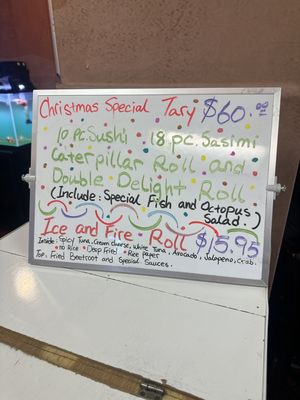 Christmas Special Tary $60.00
10 pc. Sushi 18 pc. Sasimi
Caterpillar Roll and
Double Delight Roll
(Include: Special Fish and Octopus
Salad.)
Ice and Fire Roll $15.95
Inside: Spicy Tuna, Cream Chease, White Tuna, Avocado, Jalapeño, Crab.
*no Rice *Deep Fried *Rice paper
Top: Fried Beetroot and Special Sauces.